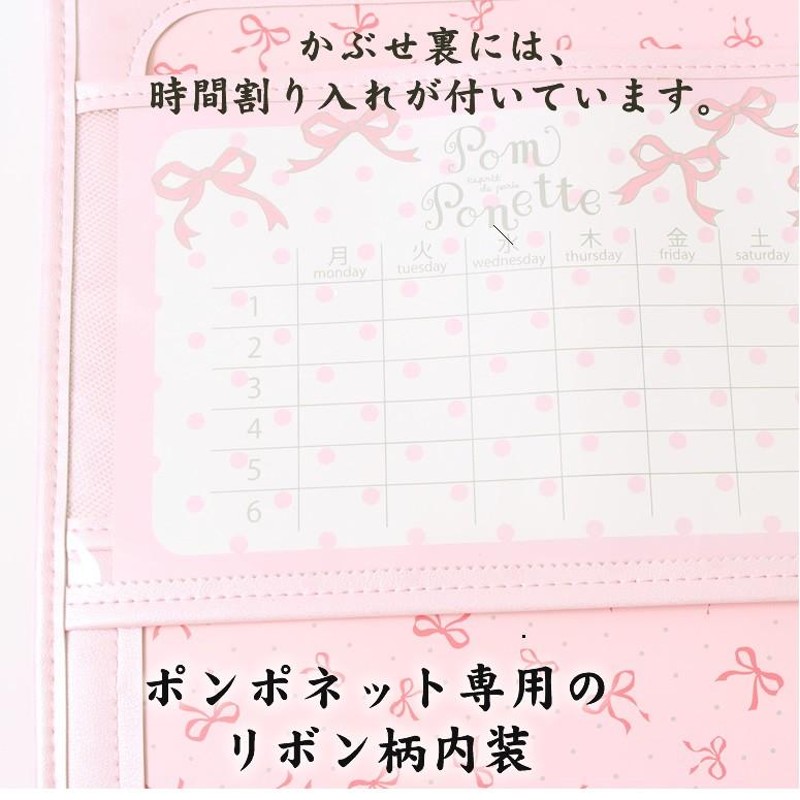 かぶせ裏には、
時間割り入れが付いています。
Pom
esprit de paris
Ponette
月 火 水 木 金 土
monday tuesday wednesday thursday friday saturday
1
2
3
4
5
6
ポンポネット専用の
リボン柄内装